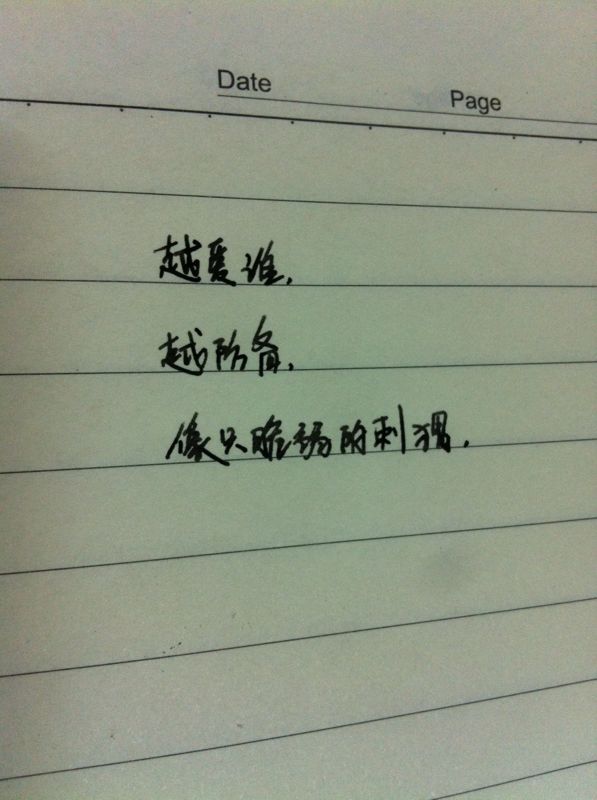 Date Page
越爱谁,
越防备,
像只脆弱的刺猬.